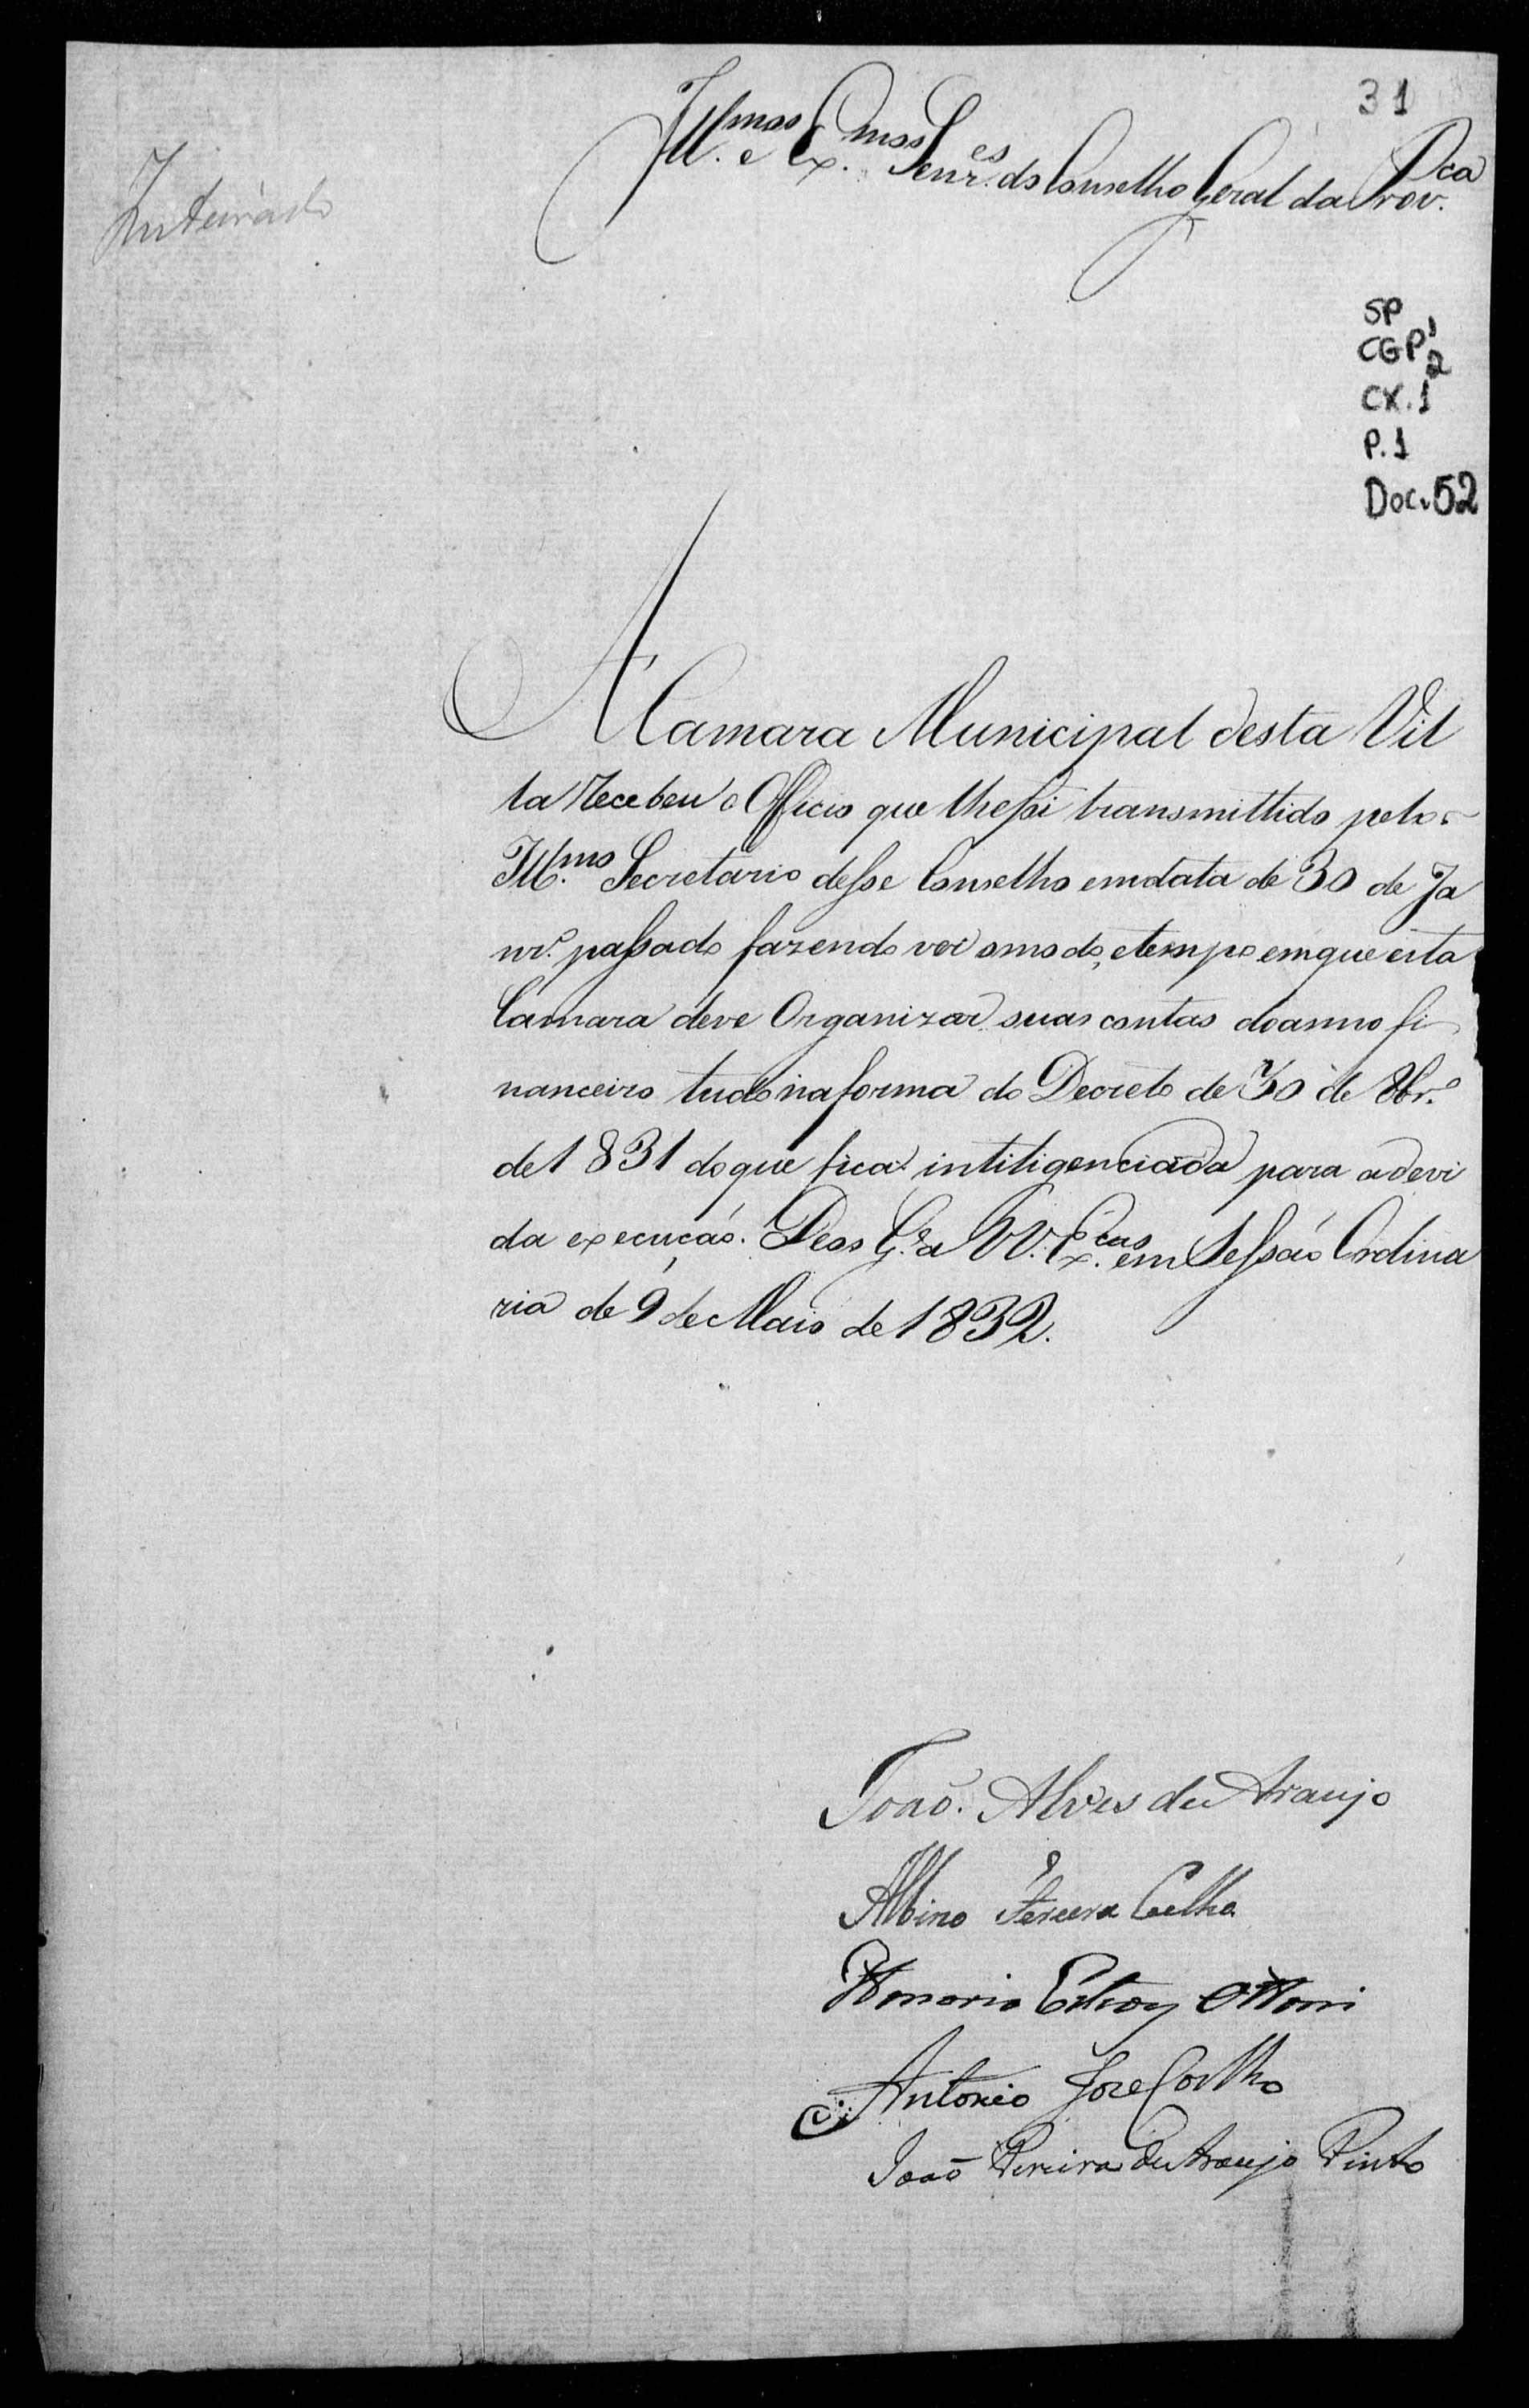 31
Ill.mos e Ex.mos Senr.es do Conselho Geral da Prov.ca
Inteirado
SP
CGP 1
2
CX. 1
P. 1
Doc. 52
A Camara Municipal desta Vil
la recebeu o Officio que lhe foi transmittido pelo
Ill.mo Secretario desse Conselho em data de 30 de Ja
nr.o passado fazendo ver o modo, e tempo em que esta
Camara deve Organizar suas contas do anno fi
nanceiro tudo na forma do Decreto de 30 de 8br.o
de 1831 do que fica intiligenciada para a devi
da execução. Deos G.e a VV. Ex.cas em Sessão Ordina
ria de 9 de Maio de 1832.
João Alves de Araujo
Albino Pereira Coelho
Honorio Esteves Ottoni
Antonio Joze Coelho
João Pereira de Araujo Pinto